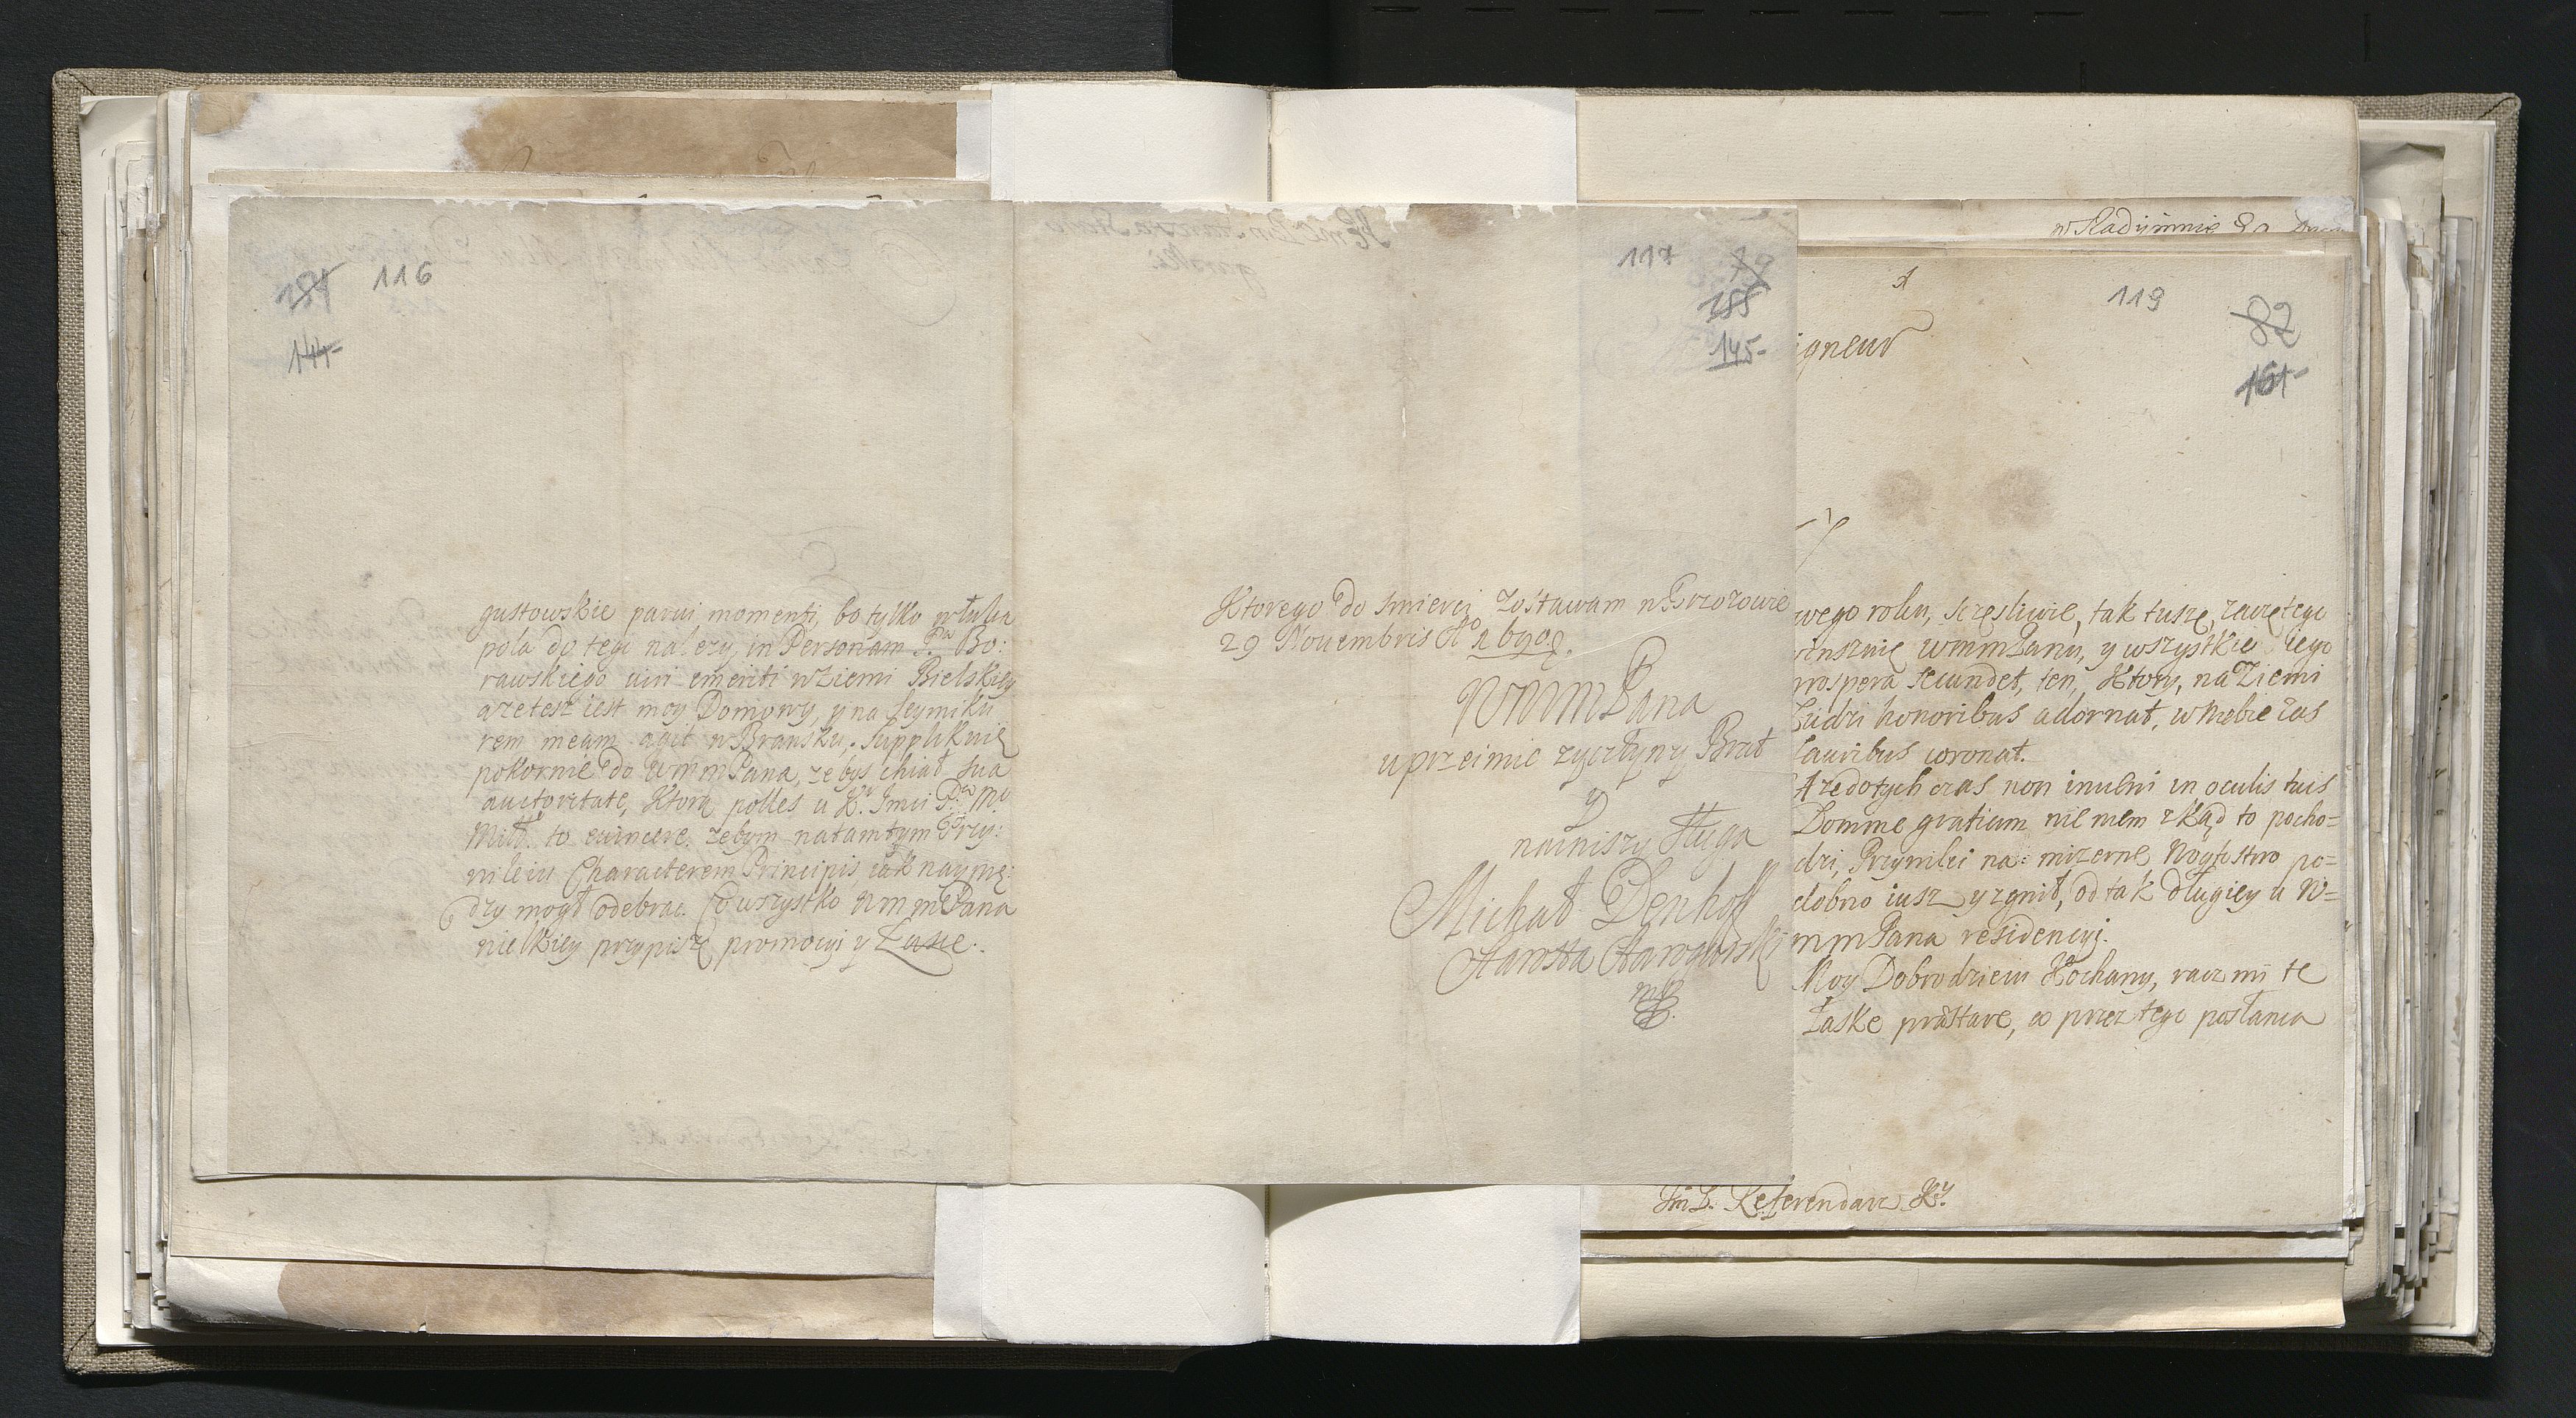 184 116
144
gustowskie parui momenti, bo tylko włuka
pola do tego nalezy, in Personam P. Bo:
rawskiego uiri emeriti w Ziemi Bielskiey
azetesz iest moy Domowy, y na seymiku
rem meam agit w Bransku. Supplikuię
pokornie do WmmPana, zebys chiał sua
auctoritate, ktorą polles u K. Imci P. M
Miłł. to euincere. zebym natamtym Przy:
wileiu Characterem Principis iak nayprę:
dzy mogł odebrac. Co wszystko WmmPana
wielkiey przypiszę promocyi y Łasce.
117 79
185
145
Ktorego do smierci zostawam w Brzozowie
29 Nouembris Aº 1690.
WmmPana
uprzeimie zyczłyny Brat
y
nainiszy Sługa
Michał Denhoff
Starosta Starogardski
mp
w Radÿimnie
A
119 82
161
igneur
wego roku, sczęsliwie, tak tuszę, zaczętego
winszuię WmmPanu, y wszystkie iego
prospera secundet, ten, ktory, na Ziemi
Ludzi honoribus adornat, w Niebie zas
lauribus coronat.
A ze dotych czas non inueni in oculis tuis
Domine gratiam nie wiem zkąd to pocho=
dzi, Przywilei na mizerne Woytostwo po=
dobno iusz y zgnił, od tak długiey u W=
mmPana residencyi.
Moy Dobrodzieiu Kochany, racz mi te
Łaske prästare, co przez tego posłanca
Im P. Referendarz K.